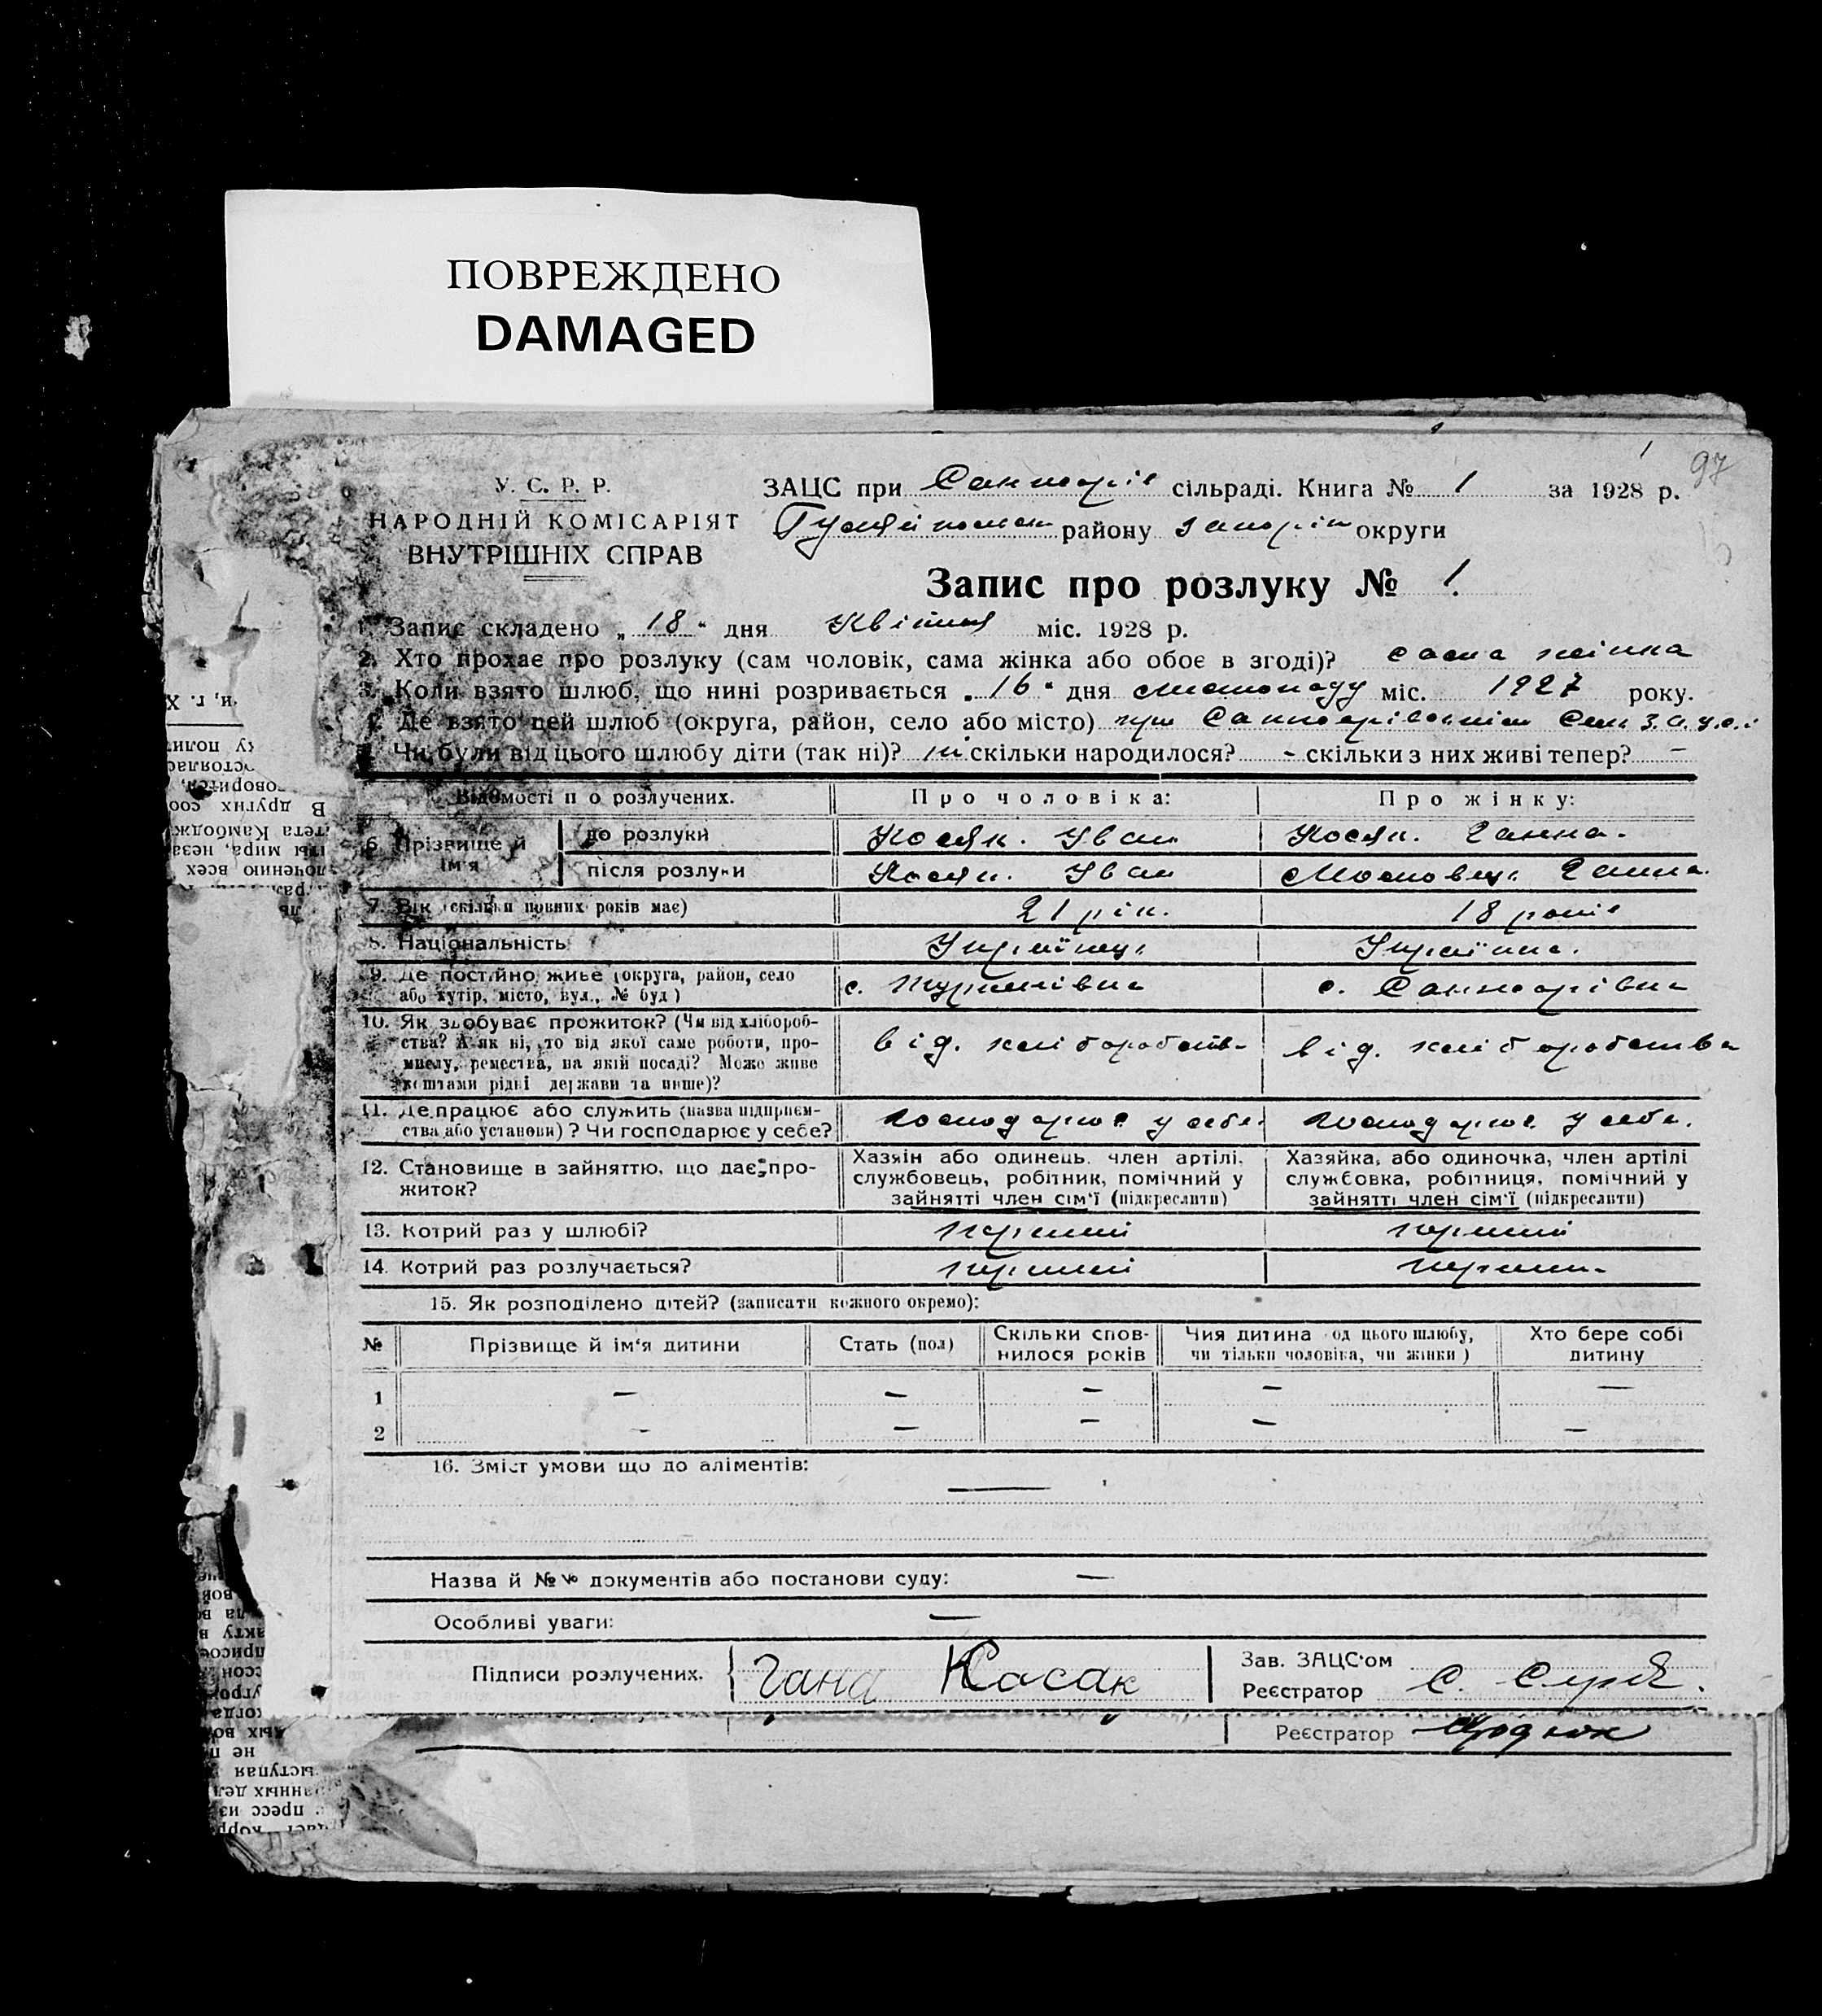 ПОВРЕЖДЕНО
DAMAGED
97
У. С. Р. Р.
НАРОДНІЙ КОМІСАРІЯТ
ВНУТРІШНІХ СПРАВ
ЗАЦС при сільраді. Книга № 1 за 1928 р.
району округи
Запис про розлуку № 1.
1. Запис складено „ 18 " дня Квітня міс. 1928 р.
2. Хто прохає про розлуку (сам чоловік, сама жінка або обоє в згоді)? сама жінка
3. Коли взято шлюб, що нині розривається „ 16 " дня листопаду міс. 1927 року.
4. Де взято цей шлюб (округа, район, село або місто) при
5. Чи були від цього шлюбу діти (так ні)? ні скільки народилося? - скільки з них живі тепер? -
Відомості по розлучених. Про чоловіка: Про жінку:
6. Прізвище й ім'я до розлуки Косяк. Іван Косяк. Ганна.
після розлуки Косяк. Іван Ганна.
7. Вік (скільки повних років має) 21 рік. 18 років
8. Національність Українець Українка.
9. Де постійно живе (округа, район, село
або хутір, місто, вул., № буд) с. с. Санжарівка
10. Як здобуває прожиток? (Чи від хлібороб-
ства? А як ні, то від якої саме роботи, про-
мислу, ремества, на якій посаді? Може живе
коштами рідні держави та инше)? від. хліборобства від. хліборобства
11. Де працює або служить (назва підприєм-
ства або установи)? Чи господарює у себе? господарює у себе господарює у себе.
12. Становище в зайняттю, що дає про-
житок?
Хазяін або одинець, член артілі,
службовець, робітник, помічний у
зайнятті член сім'ї (підкреслити)
Хазяйка, або одиночка, член артілі
службовка, робітниця, помічний у
зайнятті член сім'ї (підкреслити)
13. Котрий раз у шлюбі? перший перший
14. Котрий раз розлучається? перший перший
15. Як розподілено дітей? (записати кожного окремо):
№ Прізвище й ім'я дитини Стать (пол) Скільки спов-
нилося років Чия дитина (од цього шлюбу,
чи тільки чоловіка, чи жінки) Хто бере собі
дитину
1 — — — — —
2 — — — — —
16. Зміст умови що до аліментів: —
Назва й №№ документів або постанови суду: —
Особливі уваги: —
Підписи розлучених. Гана Косак
Зав. ЗАЦС'ом
Реєстратор С.
Реєстратор